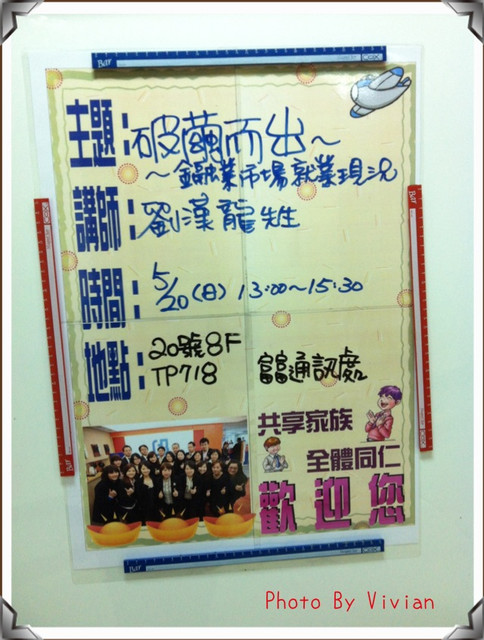 主題：破繭而出～
～金融業市場就業現況
講師：劉漢龍先生
時間：5/20(日) 13:00～15:30
地點：20號8F
TP718
富富通訊處
共享家族
全體同仁
歡迎您
Photo By Vivian